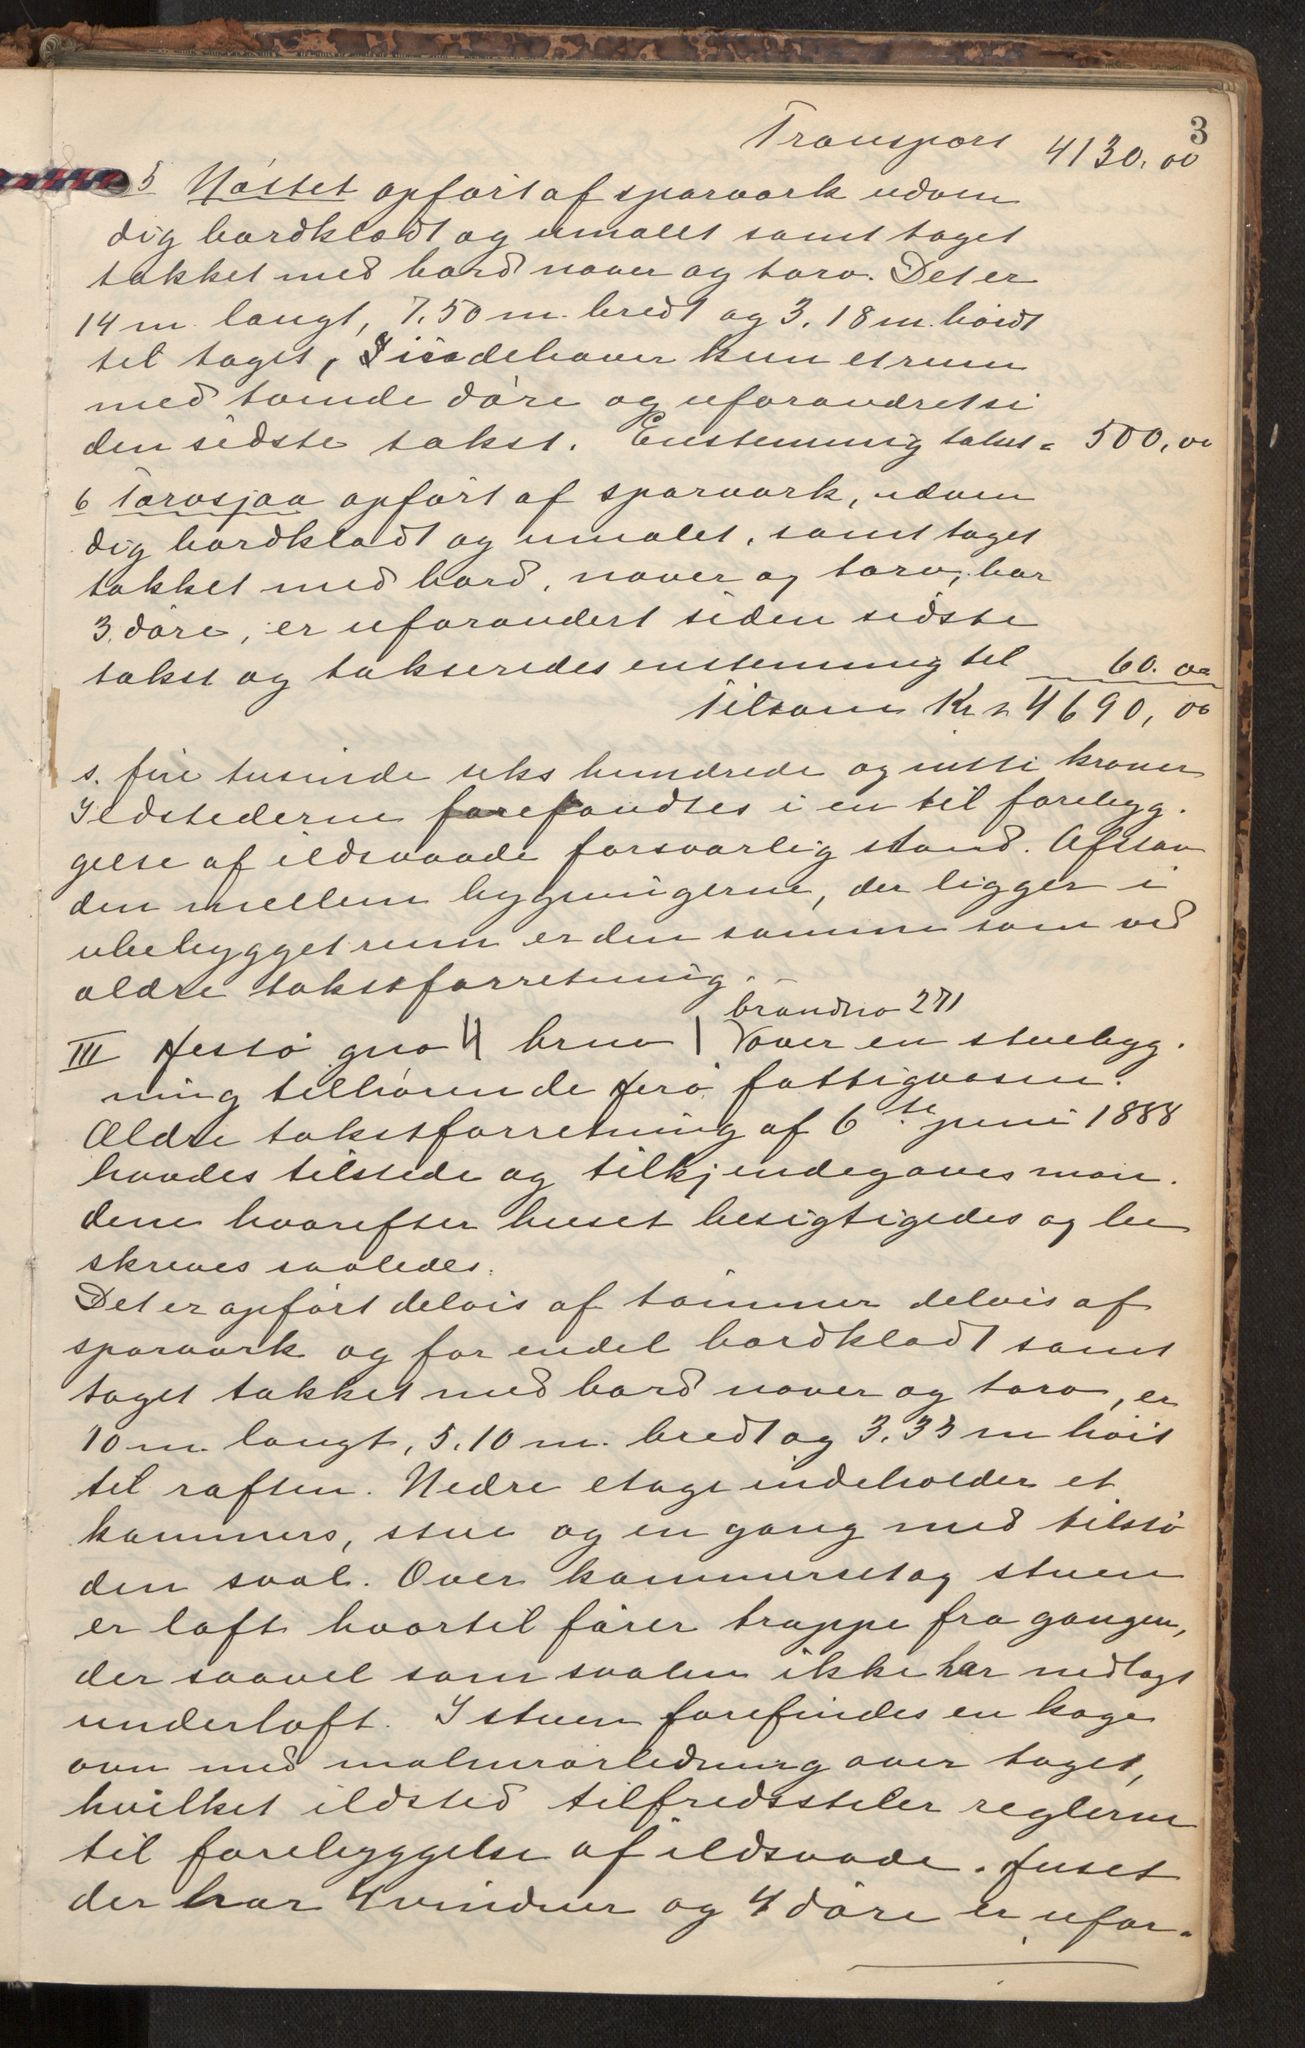 3
Transport 4130,00
5 Nöstet opført af sparverk udven
dig bordklædt og umalet samt taget
tækket med bord næver og torv. Det er
14 m. langt, 7.50 m. bredt og 3.18 m. höidt
til taget, Indehaver kun et rum
med tvende döre og uforandret si
den sidste takst. Enstemmig takst = 500,00
6 Torvsjaa opfört af sparverk, udven
dig bordklædt og umalet, samt taget
tækket med bord, næver og torv, har
3 döre, er uforandert siden sidste
takst og takseredes enstemmig til 60.00
Tilsam Kr 4690,00
s. fire tusinde seks hundrede og nitti kroner
Ildstederne forefandtes i en til forebyg-
gelse af ildsvaade forsvarlig stand. Afstan
den mellem bygningerne, der ligger i
ubebygget rum er den samme som ved
ældre takstforretning.
brandno 271
III Hestö gno 4 brno 1 over en stuebyg-
ning tilhörende Herö fattigvæsen.
Ældre takstforretning af 6te juni 1888
havdes tilstede og tilkjendegaves mæn-
dene hvorefter huset besigtigedes og be
skreves saaledes:
Det er opfört delvis af tömmer delvis af
sparverk og for endel bordklædt samt
taget tækket med bord næver og torv, er
10 m. langt, 5.10 m. bredt og 3.33 m höit
til raften. Nedre etage indeholder et
kammers, stue og en gang med tilstö
den sval. Over kammerset og stuen
er loft hvortil förer trappe fra gangen,
der saavel som svalen ikke har nedlagt
underloft. I stuen forefindes en koge
ovn med malmrörledning over taget,
hvilket ildsted tilfredsstiler reglerne
til forebyggelse af ildsvaade. Huset
der har 4 vinduer og 4 döre er ufor-